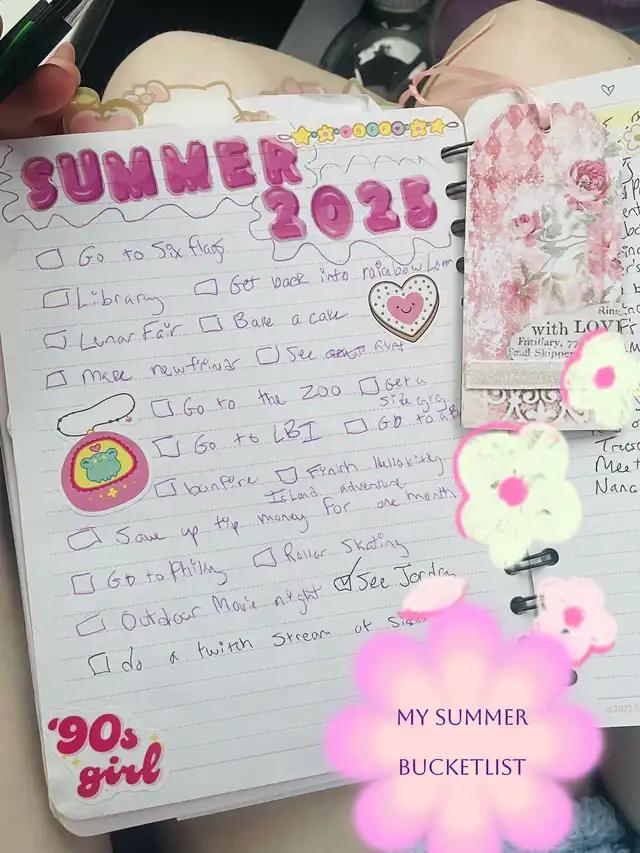 BFF
SUMMER
2025
Go to Six flags
Library Get back into rainbow Lom
Lunar Fair Bake a cake
Make new friends See aunt
Go to the Zoo Get a
side
Go to LBI Go to a B
bonfire Finish Hello Kitty
Island adventure
Save up tip money for one month
Go to Philly Rollar Skating
Outdoor Movie night See Jordan
do a twitch stream of
'90s
girl
with LOVE
Fritillary, 77
Small Skipper
Meet
Nana
MY SUMMER
BUCKETLIST